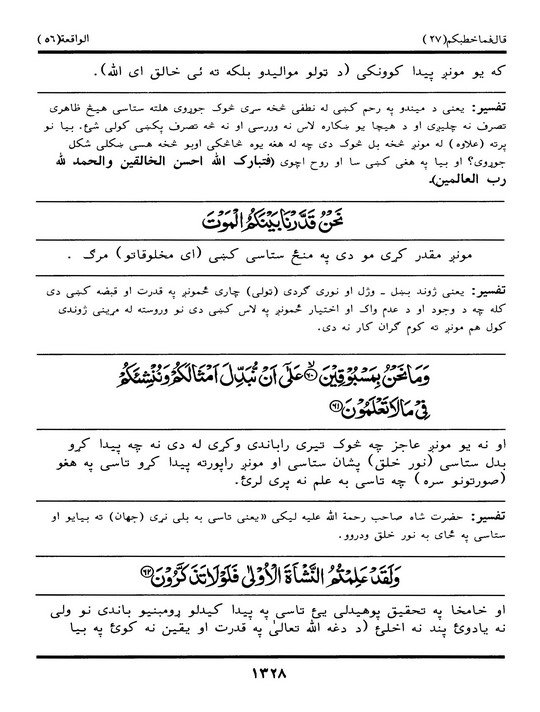 قال فما خطبكم(٢٧)
الواقعة(٥٦)
که يو مونږ پيدا کوونکي (د ټولو مواليدو بلکه ته ئی خالق ای الله).
تفسير: يعنی د ميندو په رحم کښی له نطفی څخه سړی څوک جوړوی هلته ستاسی هيڅ ظاهری
تصرف نه چليږی او د هيچا يو ښکاره لاس نه وررسی او نه څه تصرف پکښی کولی شئ. بيا نو
پرته (علاوه) له مونږ څخه بل څوک دی چه له هغه يوه څاڅکی اوبو څخه هسی ښکلی شکل
جوړوی؟ او بيا په هغی کښی سا او روح اچوی (فتبارک الله احسن الخالقين والحمد لله
رب العالمين).
نَحْنُ قَدَّرْنَا بَيْنَكُمُ الْمَوْتَ
مونږ مقدر کړی مو دی په منځ ستاسی کښی (ای مخلوقاتو) مرګ .
تفسير: يعنی ژوند بښل ـ وژل او نوری ګردی (ټولی) چاری ځمونږ په قدرت او قبضه کښی دی
کله چه د وجود او د عدم واک او اختيار ځمونږ په لاس کښی دی نو وروسته له مړينی ژوندی
کول هم مونږ ته کوم ګران کار نه دی.
وَمَا نَحْنُ بِمَسْبُوْقِيْنَ ﴿٦٠﴾ عَلٰٓى اَنْ نُّبَدِّلَ اَمْثَالَكُمْ وَنُنْشِئَكُمْ
فِىْ مَا لَا تَعْلَمُوْنَ ﴿٦١﴾
او نه يو مونږ عاجز چه څوک تيری راباندی وکړی له دی نه چه پيدا کړو
بدل ستاسی (نور خلق) پشان ستاسی او مونږ راپورته پيدا کړو تاسی په هغو
(صورتونو سره) چه تاسی به علم نه پری لرئ.
تفسير: حضرت شاه صاحب رحمة الله عليه ليکی «يعنی تاسی به بلی نړی (جهان) ته بيايو او
ستاسی په ځای به نور خلق ودروو.
وَلَقَدْ عَلِمْتُمُ النَّشْاَةَ الْاُوْلٰى فَلَوْلَا تَذَكَّرُوْنَ ﴿٦٢﴾
او خامخا په تحقيق پوهيدلی يئ تاسی په پيدا کيدلو ړومبنيو باندی نو ولی
نه يادوئ پند نه اخلئ (د دغه الله تعالیٰ په قدرت او يقين نه کوئ په بيا
١٣٢٨